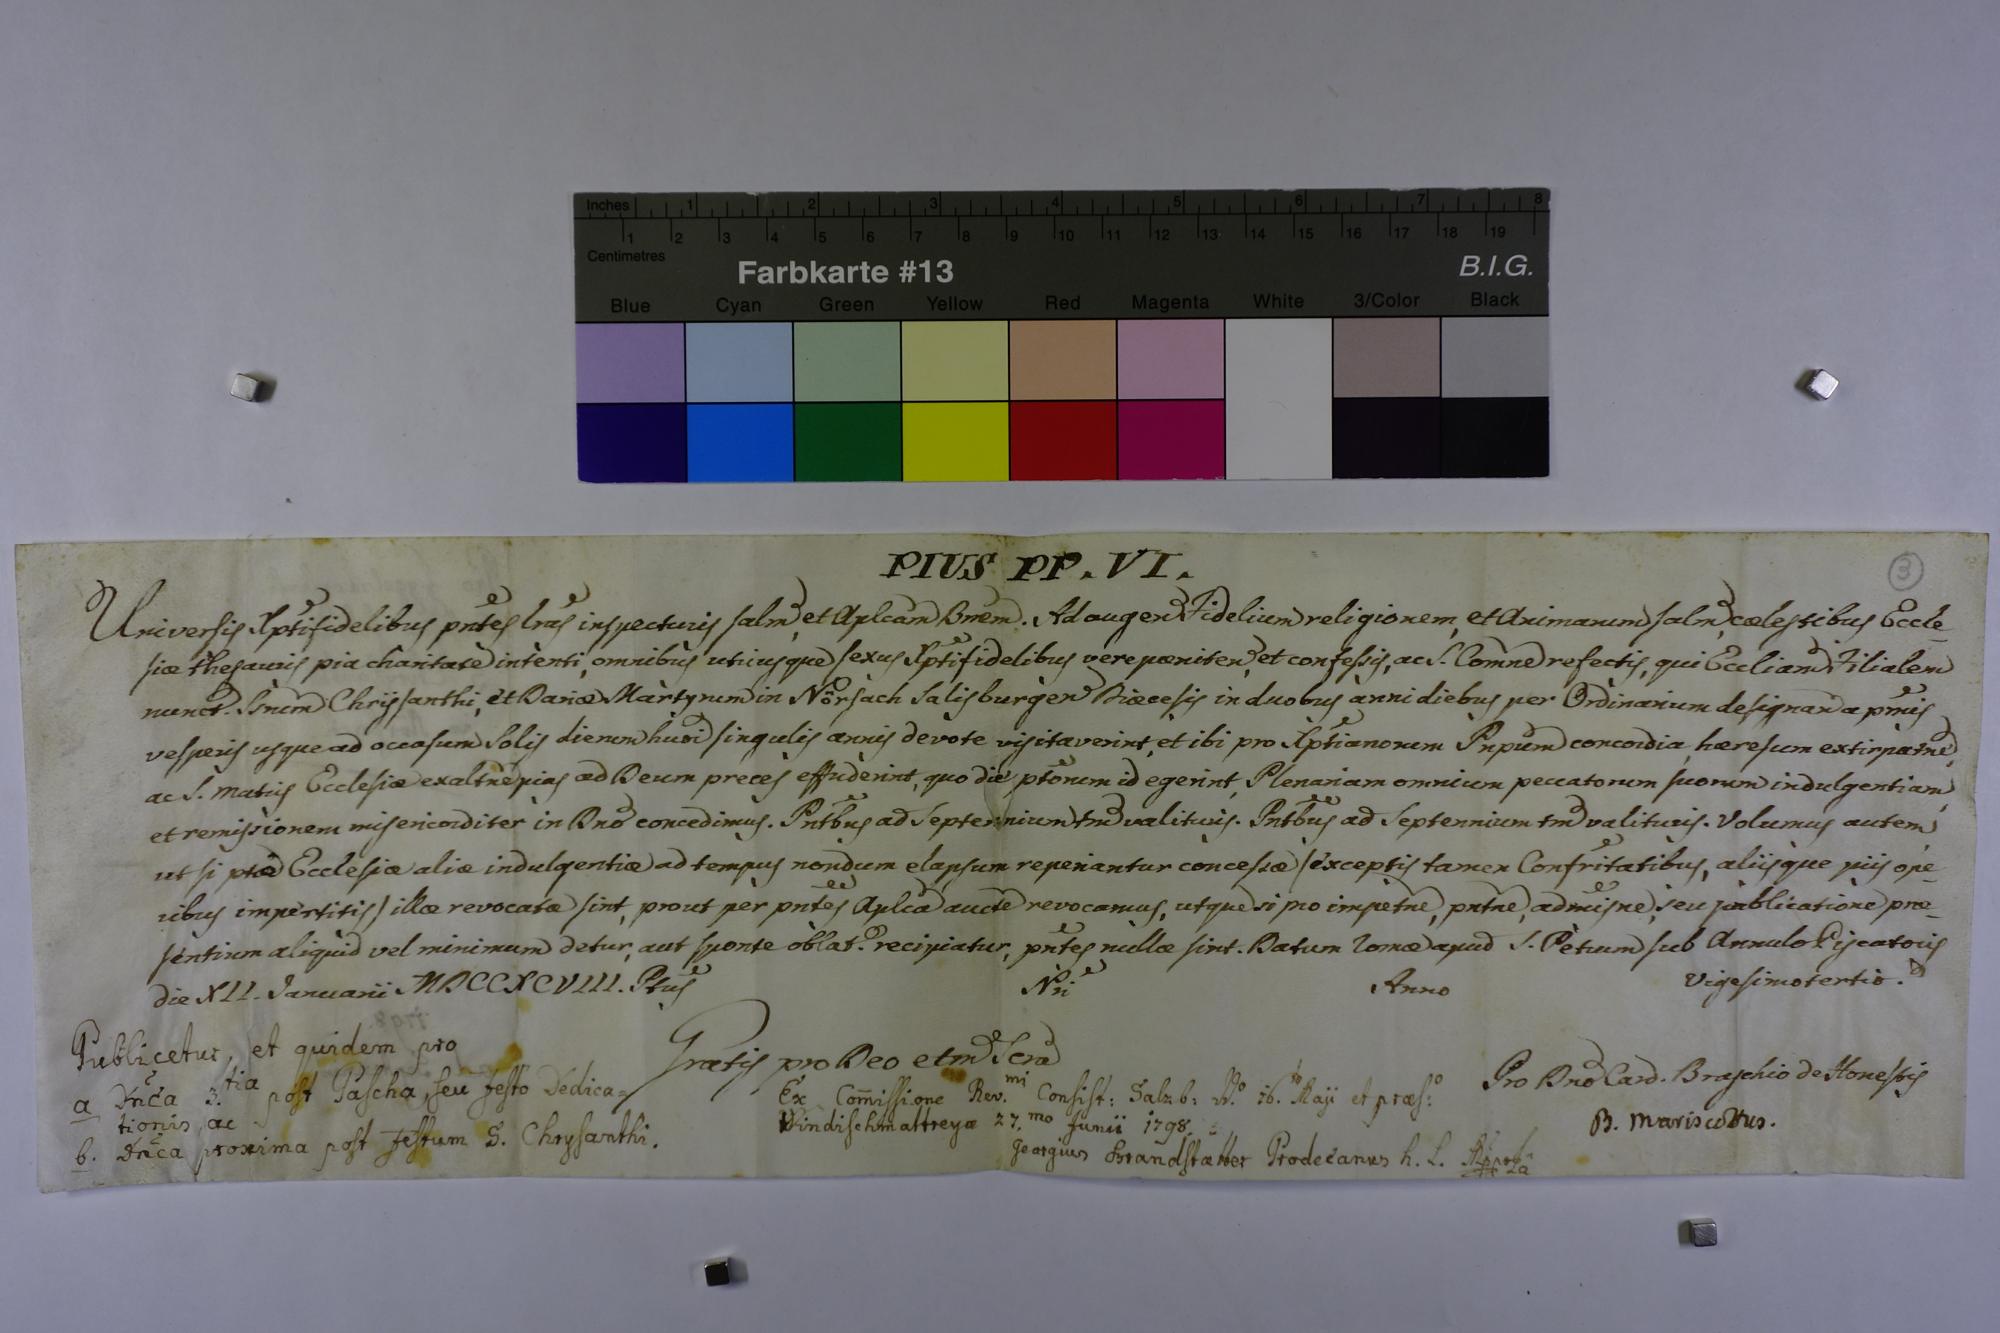 Inches 1 2 3 4 5 6 7 8
1 2 3 4 5 6 7 8 9 10 11 12 13 14 15 16 17 18 19
Centimetres
Farbkarte #13 B.I.G.
Blue Cyan Green Yellow Red Magenta White 3/Color Black
PIUS PP. VI.
3
Universis Xptifidelibus pntes lras inspecturis salm, et Aplcam Bnem. Ad augen Fidelium religionem, et Animarum salm, cælestibus Eccle-
siæ thesauris pia charitate intenti, omnibus utriusque sexus Xptifidelibus vere pæniten, et confessis, ac S. Comne refectis, qui Eccliam Filialem
nunct. Snum Chrijsanthi, et Dariæ Martyrum in Nörsach Salisburgen Diæcesis in duobus anni diebus per Ordinarium designan a pmis
vesperis usque ad occasum Solis dierum hmoi singulis annis devote visitaverint, et ibi pro Xptianorum Pnpum concordia, hæresum extirpatne,
ac S. Matris Ecclesiæ exaltne pias ad Deum preces effuderint, quo die ptorum id egerint, Plenariam omnium peccatorum suorum indulgentiam,
et remissionem misericorditer in Dno concedimus. Pntbus ad Septennium tm valituris. Pntbus ad Septennium tm valituris. Volumus autem
ut si ptæ Ecclesiæ aliæ indulgentiæ ad tempus nondum elapsum reperiantur concessæ /exceptis tamen Confritatibus, aliisque piis ope-
ribus impertitis/ illæ revocatæ sint, prout per pntes Aplca aucte revocamus, utque si pro impetne, pntne, admisne, seu publicatione præ-
sentium aliquid vel minimum detur, aut sponte oblat. recipiatur, pntes nullæ sint. Datum Romæ apud S. Petrum sub Annulo Piscatoris
die XII. Januarii MDCCXCVIII. Ptus Nri Anno Vigesimotertio.
Publicetur, et quidem pro
a Dnca 3.tia post Pascha, seu Festo Dedica=
tionis, ac
b. Dnca proxima post Festum S. Chrysanthi.
Gratis pro Deo et m Scra
Ex Commissione Rev.mi Consist: Salzb: D.o 16.to Maji et præs:
Windischmattreyæ 27.mo Junii 1798.
Georgius Brandstætter Prodecanus h. L.
Pro Dno Card. Braschio de Honestis
B. Mariscottus.